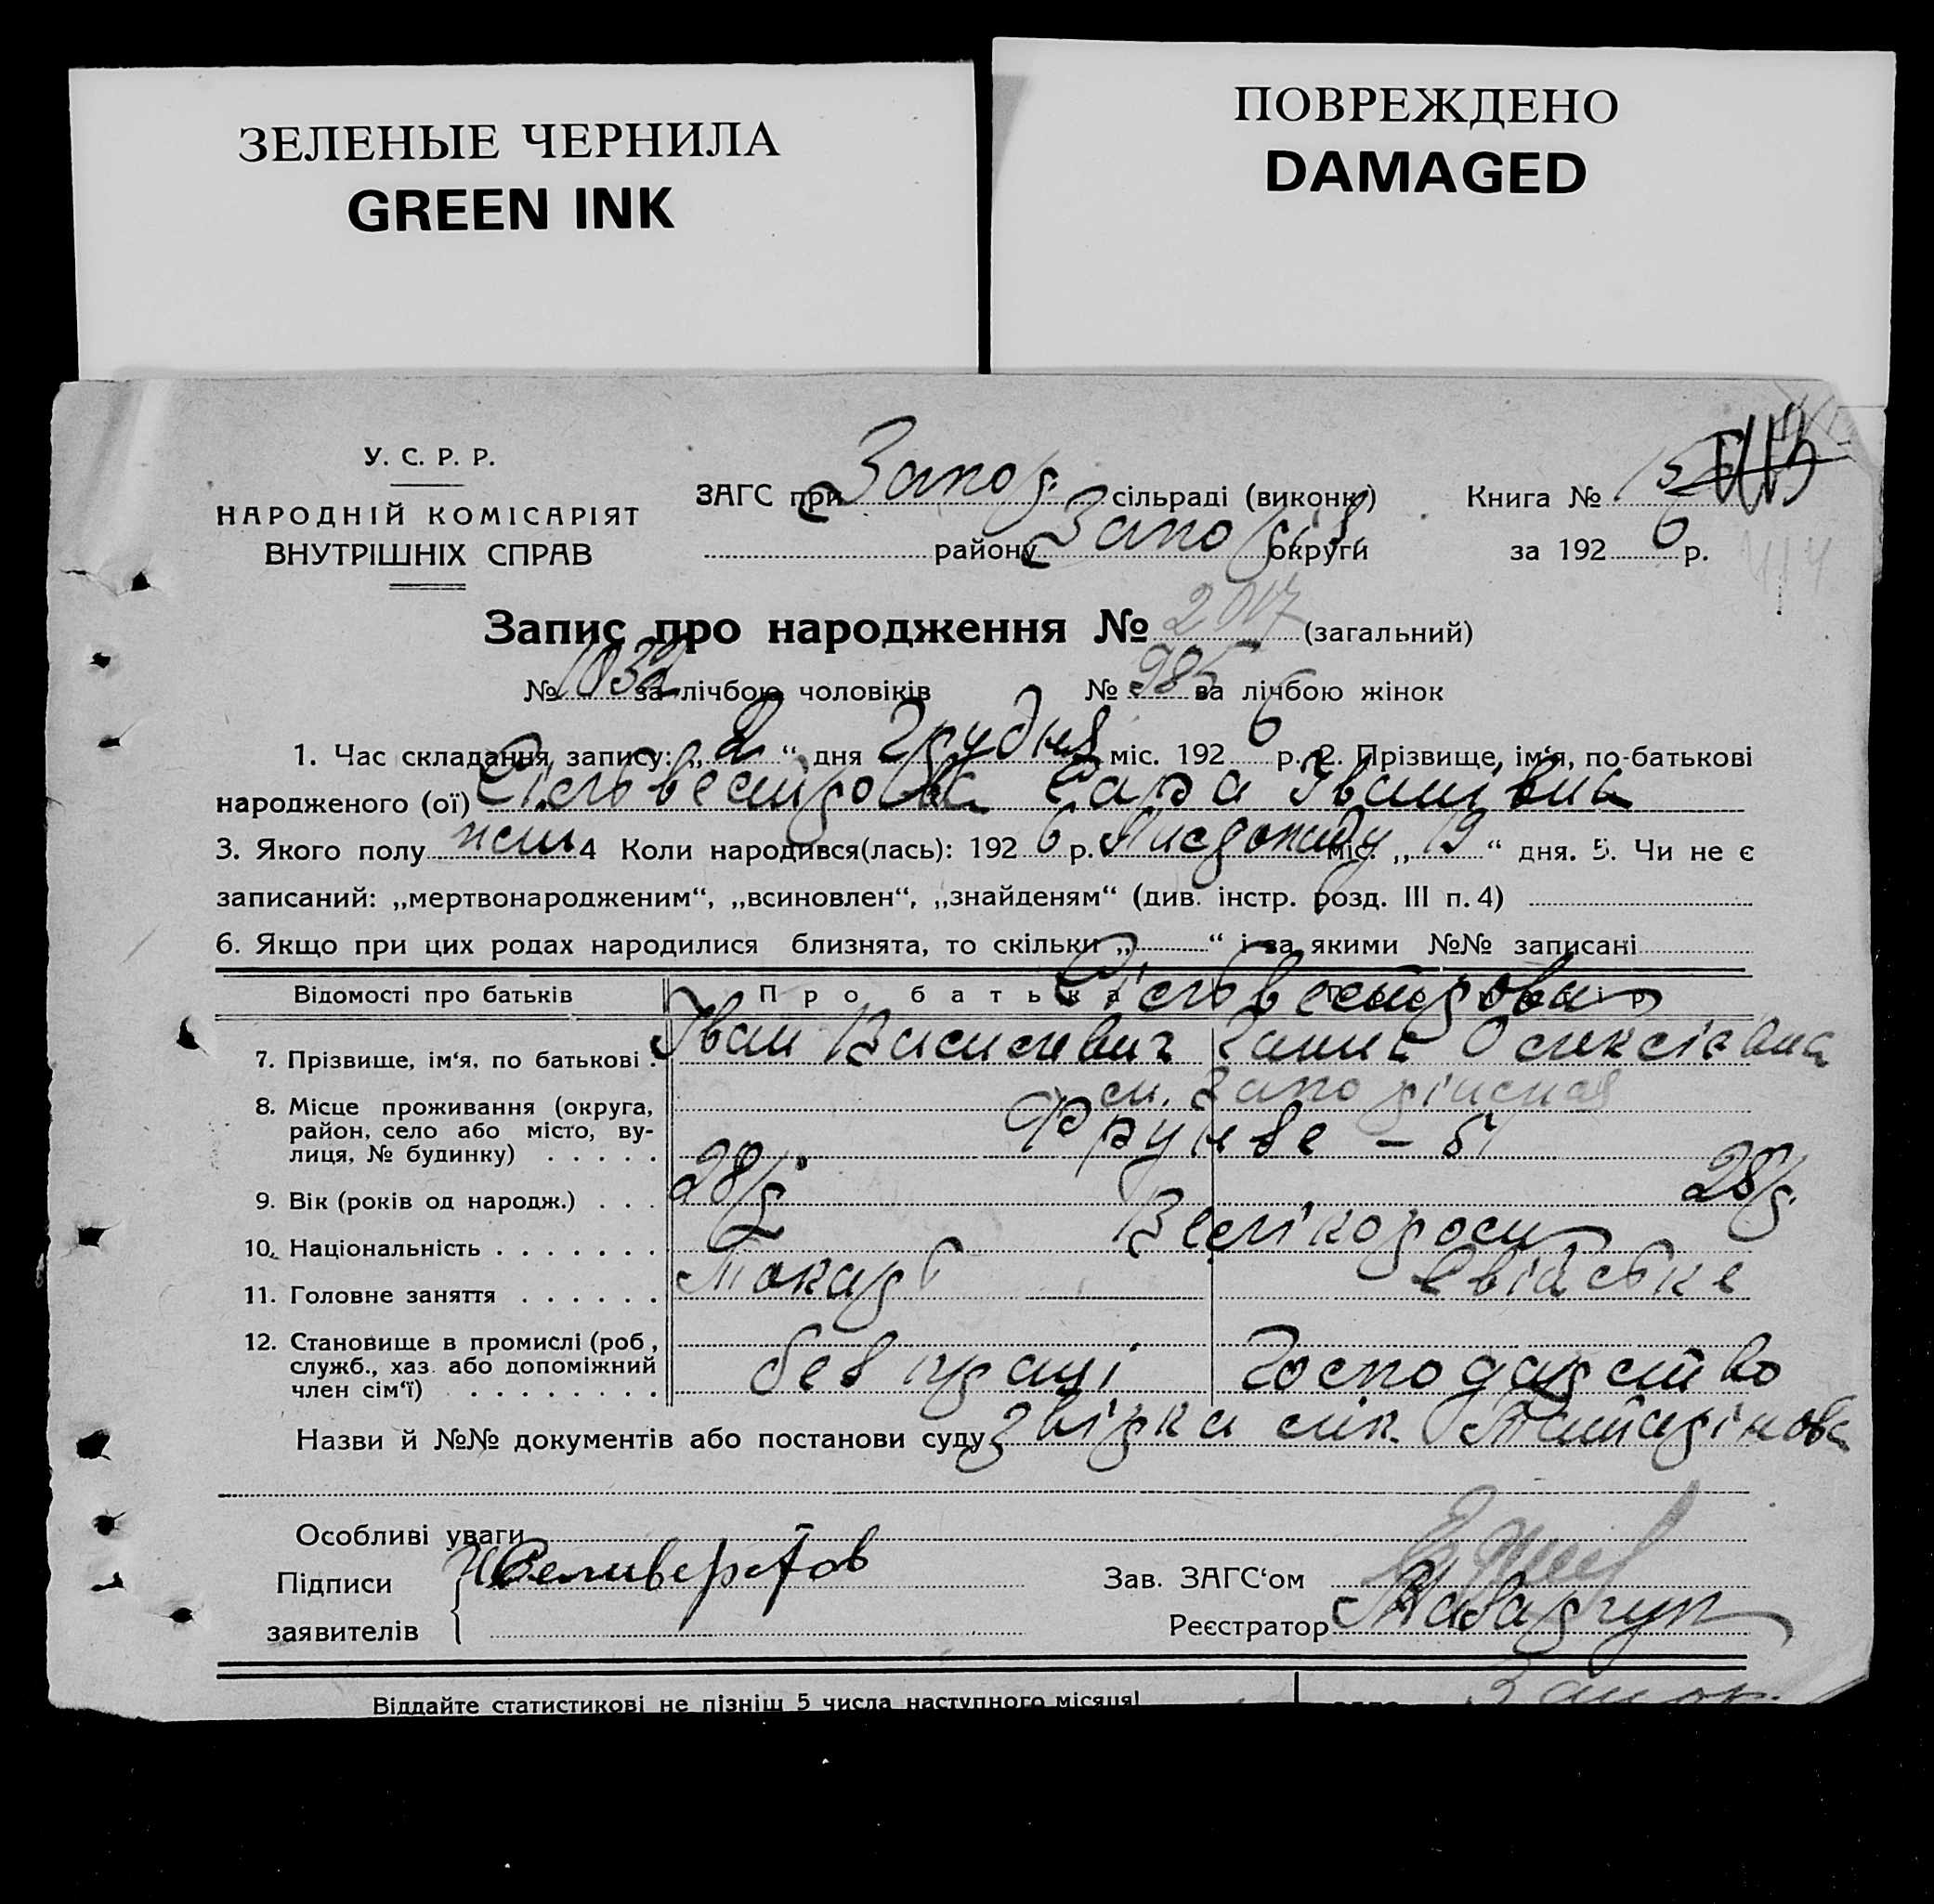 ЗЕЛЕНЫЕ ЧЕРНИЛА
GREEN INK
ПОВРЕЖДЕНО
DAMAGED
У. С. Р. Р.
НАРОДНІЙ КОМІСАРІЯТ
ВНУТРІШНІХ СПРАВ
ЗАГС при Запор. сільраді (виконк.)
району Запоріз. округи
Книга №
за 192 6 р.
Запис про народження № 2017 (загальний)
№ 1032 за лічбою чоловіків № 985 за лічбою жінок
1. Час складання запису: „ 2 “ дня Грудня міс. 192 6 р. 2. Прізвище, ім‘я, по-батькові
народженого (ої) Сільвестрова Сара Іванівна
3. Якого полу жін 4 Коли народився(лась): 192 6 р. Листопаду міс. „ 19 “ дня. 5. Чи не є
записаний: „мертвонародженим“, „всиновлен“, „знайденям“ (див. інстр. розд. III п. 4)
6. Якщо при цих родах народилися близнята, то скільки „ “ і за якими №№ записані
Відомості про батьків Про батька Про матір
Сільвестрови
7. Прізвище, ім‘я, по батькові . Іван Василевич Ганна Олексіевна
8. Місце проживання (округа,
район, село або місто, ву-
лиця, № будинку) . . . . .
Фрунзе – 51
9. Вік (років од народж.) . . . 28 р. 28 р.
10. Національність . . . . . . . Велікороси
11. Головне заняття . . . . . . Токарь
12. Становище в промислі (роб.,
служб., хаз. або допоміжний
член сім‘ї) . . . . . . . . .
без праці господарство
Назви й №№ документів або постанови суду
Особливі уваги
Підписи
заявителів
Селиверстов
Зав. ЗАГС‘ом
Реєстратор
Віддайте статистикові не пізніш 5 числа наступного місяця!
Запор.